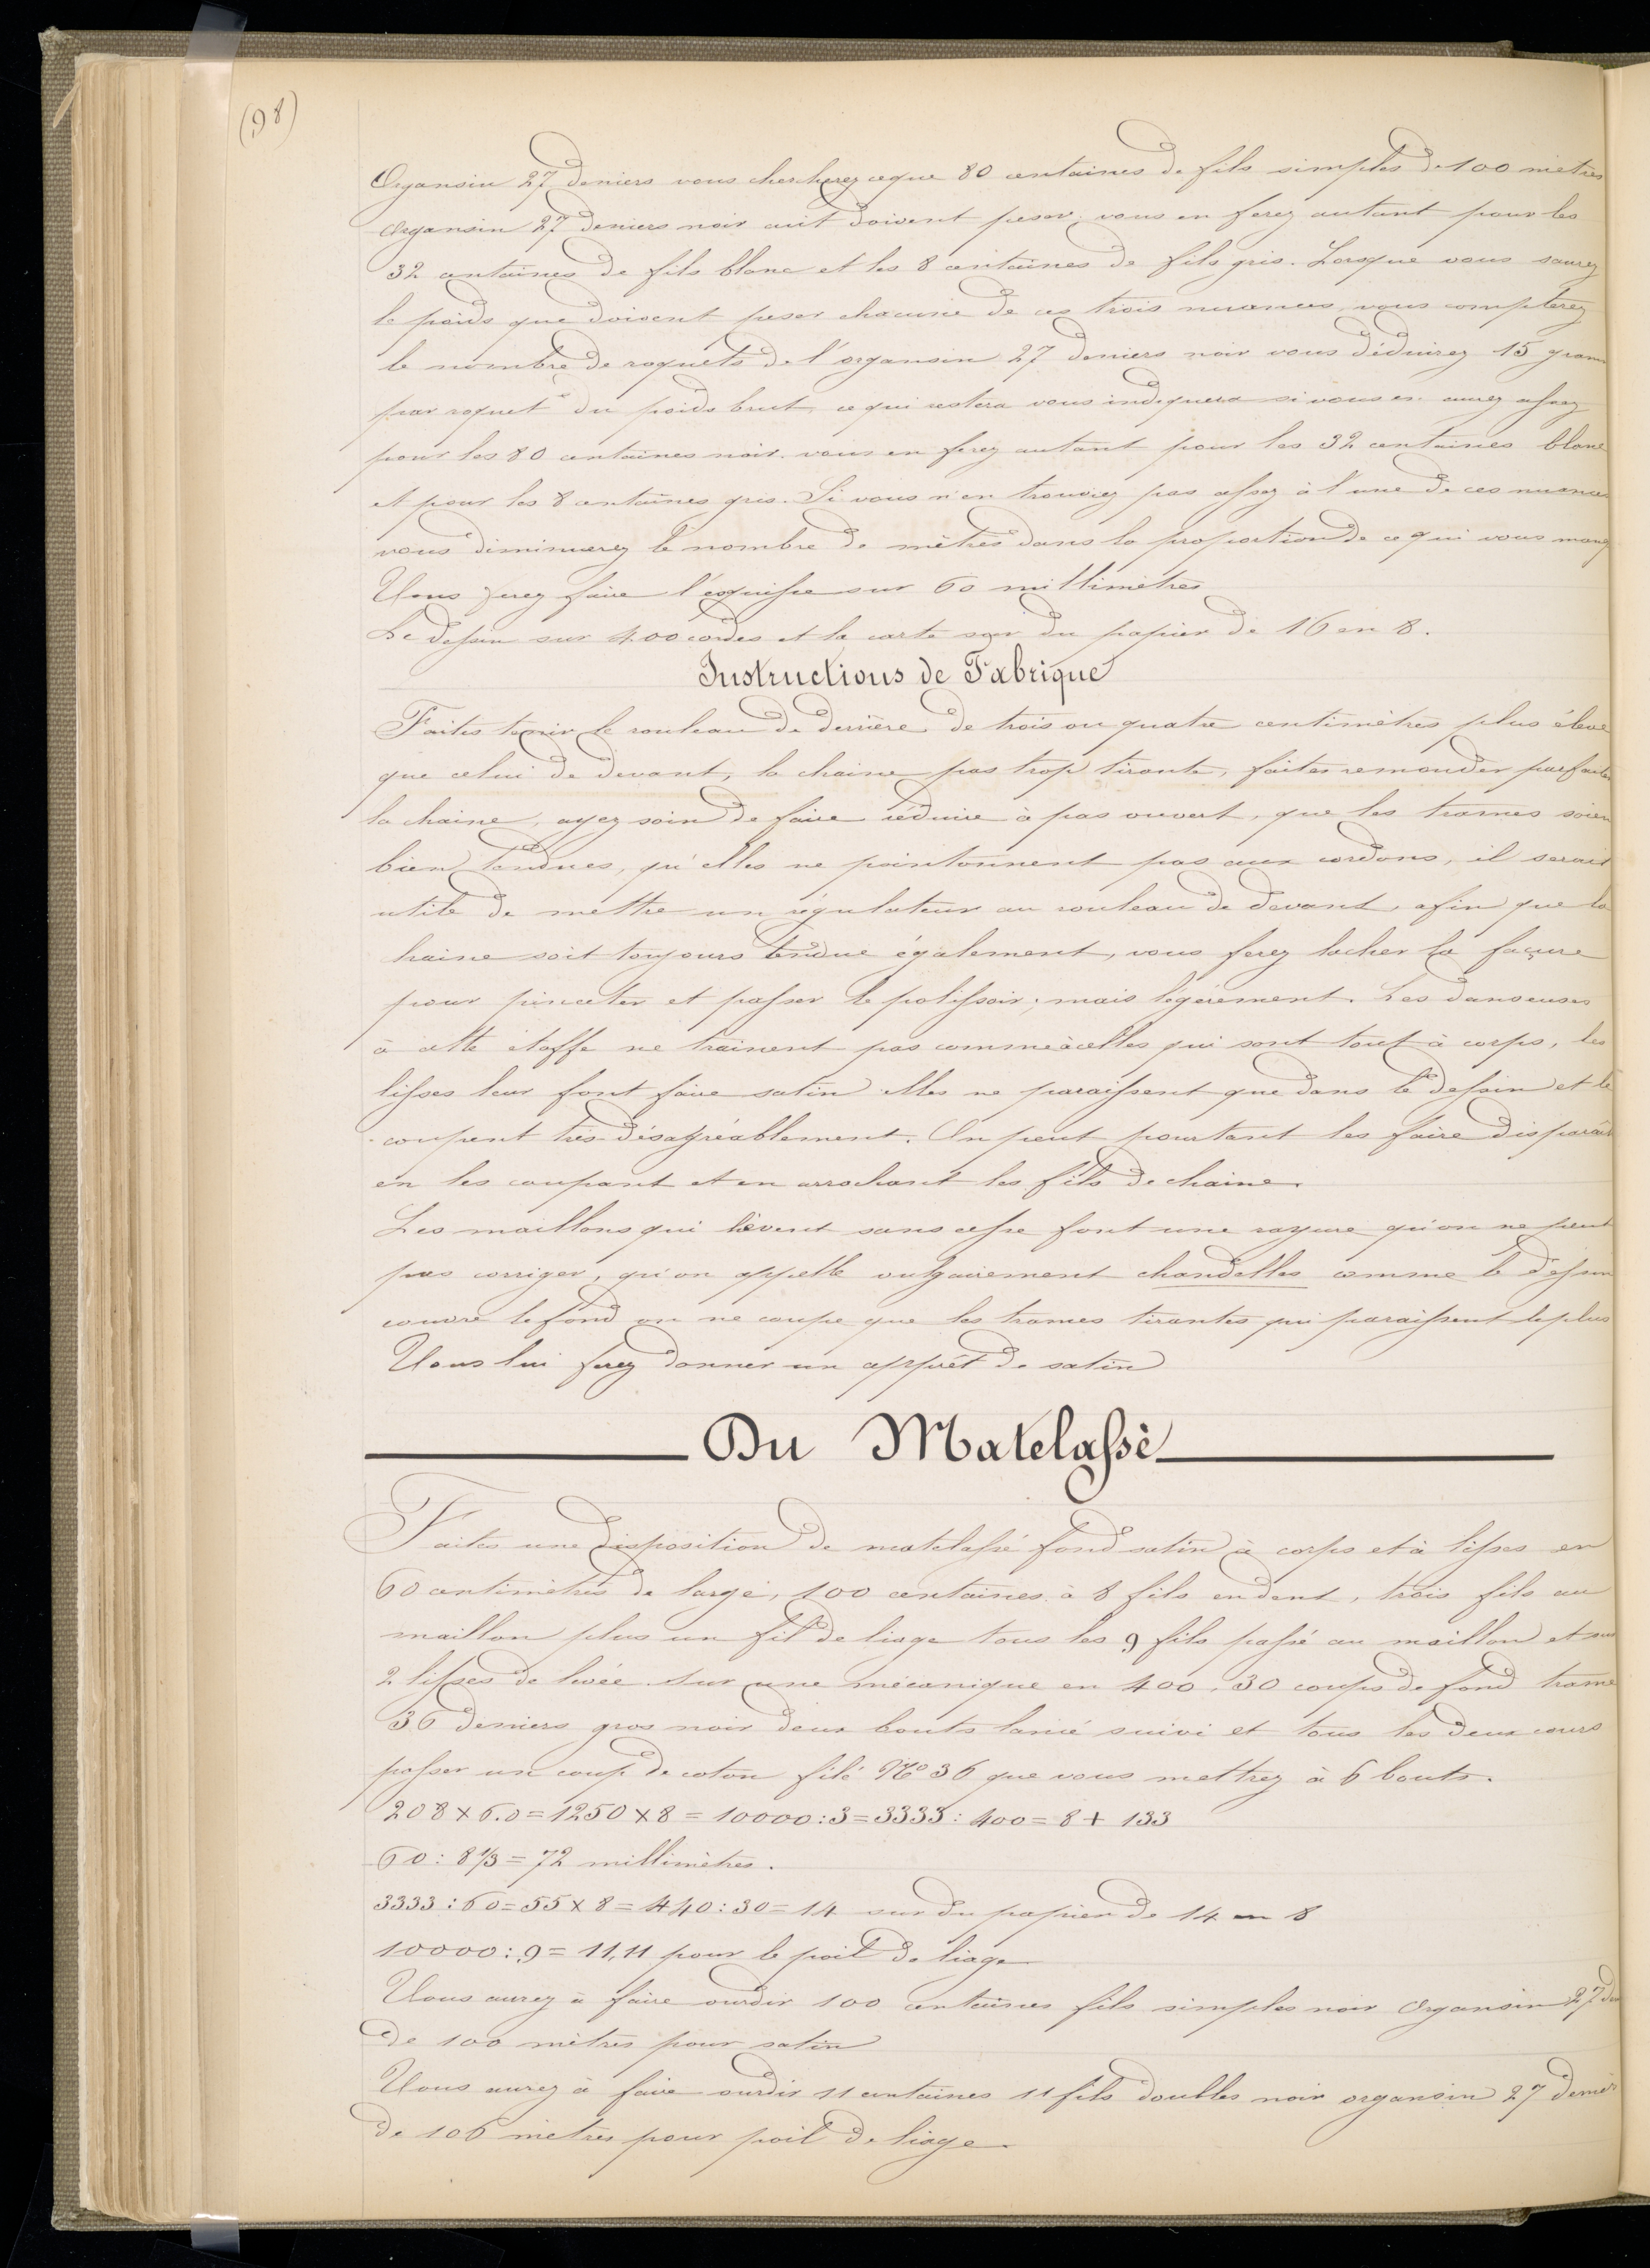 (98)
Organsin 27 deniers vous chercherez ce que 80 centaines de fils simples de 100 mètres
organsin 27 deniers noir cuit doivent peser, vous en ferez autant pour les
32 centaines de fils blanc et les 8 centaines de fils gris. Lorsque vous saurez
le poids que doivent peser chacune de ces trois nuances, vous compterez
le nombre de roquets de l'organsin 27 deniers noir vous déduirez 15 gram
par roquet du poids brut, ce qui restera vous indiquera si vous en aurez assez
pour les 80 centaines noir. vous en ferez autant pour les 32 centaines blanc
et pour les 8 centaines gris. Si vous n'en trouviez pas assez à l'une de ces nuances
vous diminuerez le nombre de mètres dans la proportion de ce qui vous manq
Vous ferez faire l'esquisse sur 60 millimètres
Le dessin sur 400 cordes et la carte sur du papier de 16 en 8.
Instructions de Fabrique
Faites tenir le rouleau de derrière de trois ou quatre centimètres plus élevé
que celui de devant, la chaine pas trop tirante, faites remonder parfaite
la chaine, ayez soin de faire réduire à pas ouvert, que les trames soien
bien tendues, qu'elles ne pointonnent pas aux cordons, il serait
utile de mettre un régulateur au rouleau de devant, afin que la
haine soit toujours tendue également, vous ferez lacher la façure
pour pinceter et passer le polissoir; mais légèrement. Les danseuses
à cette étoffe ne trainent pas comme à celles qui sont tout à corps, les
lisses leur font faire satin elles ne paraissent que dans le dessin et le
coupent très désagréablement. On peut pourtant les faire disparait
en les coupant et en arrachant les fils de chaine.
Les maillons qui lèvent sans cesse font une rayure qu'on ne peut
pas corriger, qu'on appelle vulgairement chandelles comme le dessin
couvre le fond on ne coupe que les trames tirantes qui paraissent le plus
Vous lui ferez donner un apprêt de satin
Du Matelassé
Faites une disposition de matelassé fond satin à corps et à lisses en
60 centimètres de large, 100 centaines à 8 fils en dent, trois fils au
maillon plus un fil de liage tous les 9 fils passé au maillon et sur
2 lisses de levée sur une mécanique en 400, 30 coups de fond trame
36 deniers gros noir deux bouts lancé suivi et tous les deux cours
passer un coup de coton filé N° 36 que vous mettrez à 6 bouts.
208 x 6.0 = 1250 x 8 = 10000 : 3 = 3333 : 400 = 8 + 133
60 : 8 1/3 = 72 millimètres.
3333 : 60 = 55 x 8 = 440 : 30 = 14 sur du papier de 14 en 8
10000 : 9 = 11,11 pour le poil de liage
Vous aurez à faire ourdir 100 centaines fils simples noir Organsin 27 de
de 100 mètres pour satin
Vous aurez à faire ourdir 11 centaines 11 fils doubles noir organsin 27 denier
de 106 mètres pour poil de liage.